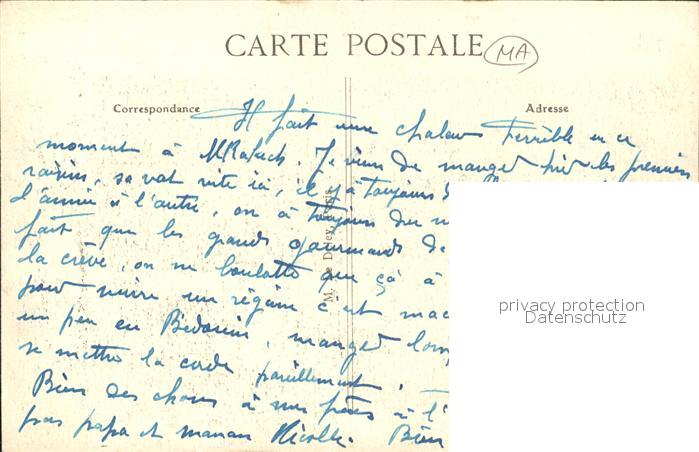 CARTE POSTALE
MA
Correspondance
Adresse
Il fait une chaleur terrible en ce
moment à MRakech. Je viens de manger les premiers
raisins, sa vat vite ici, il y à toujours
d'année à l'autre, on à toujours du
fait que les grands gourmands de
la crève, on ne boulotte que çà à
pour suivre un régime c'est
un peu en Bédouin, manger
se mettre la corde pareillement.
Bien des choses à nos frères à l'
pas papa et maman Nicolle. Bien
privacy protection
Datenschutz